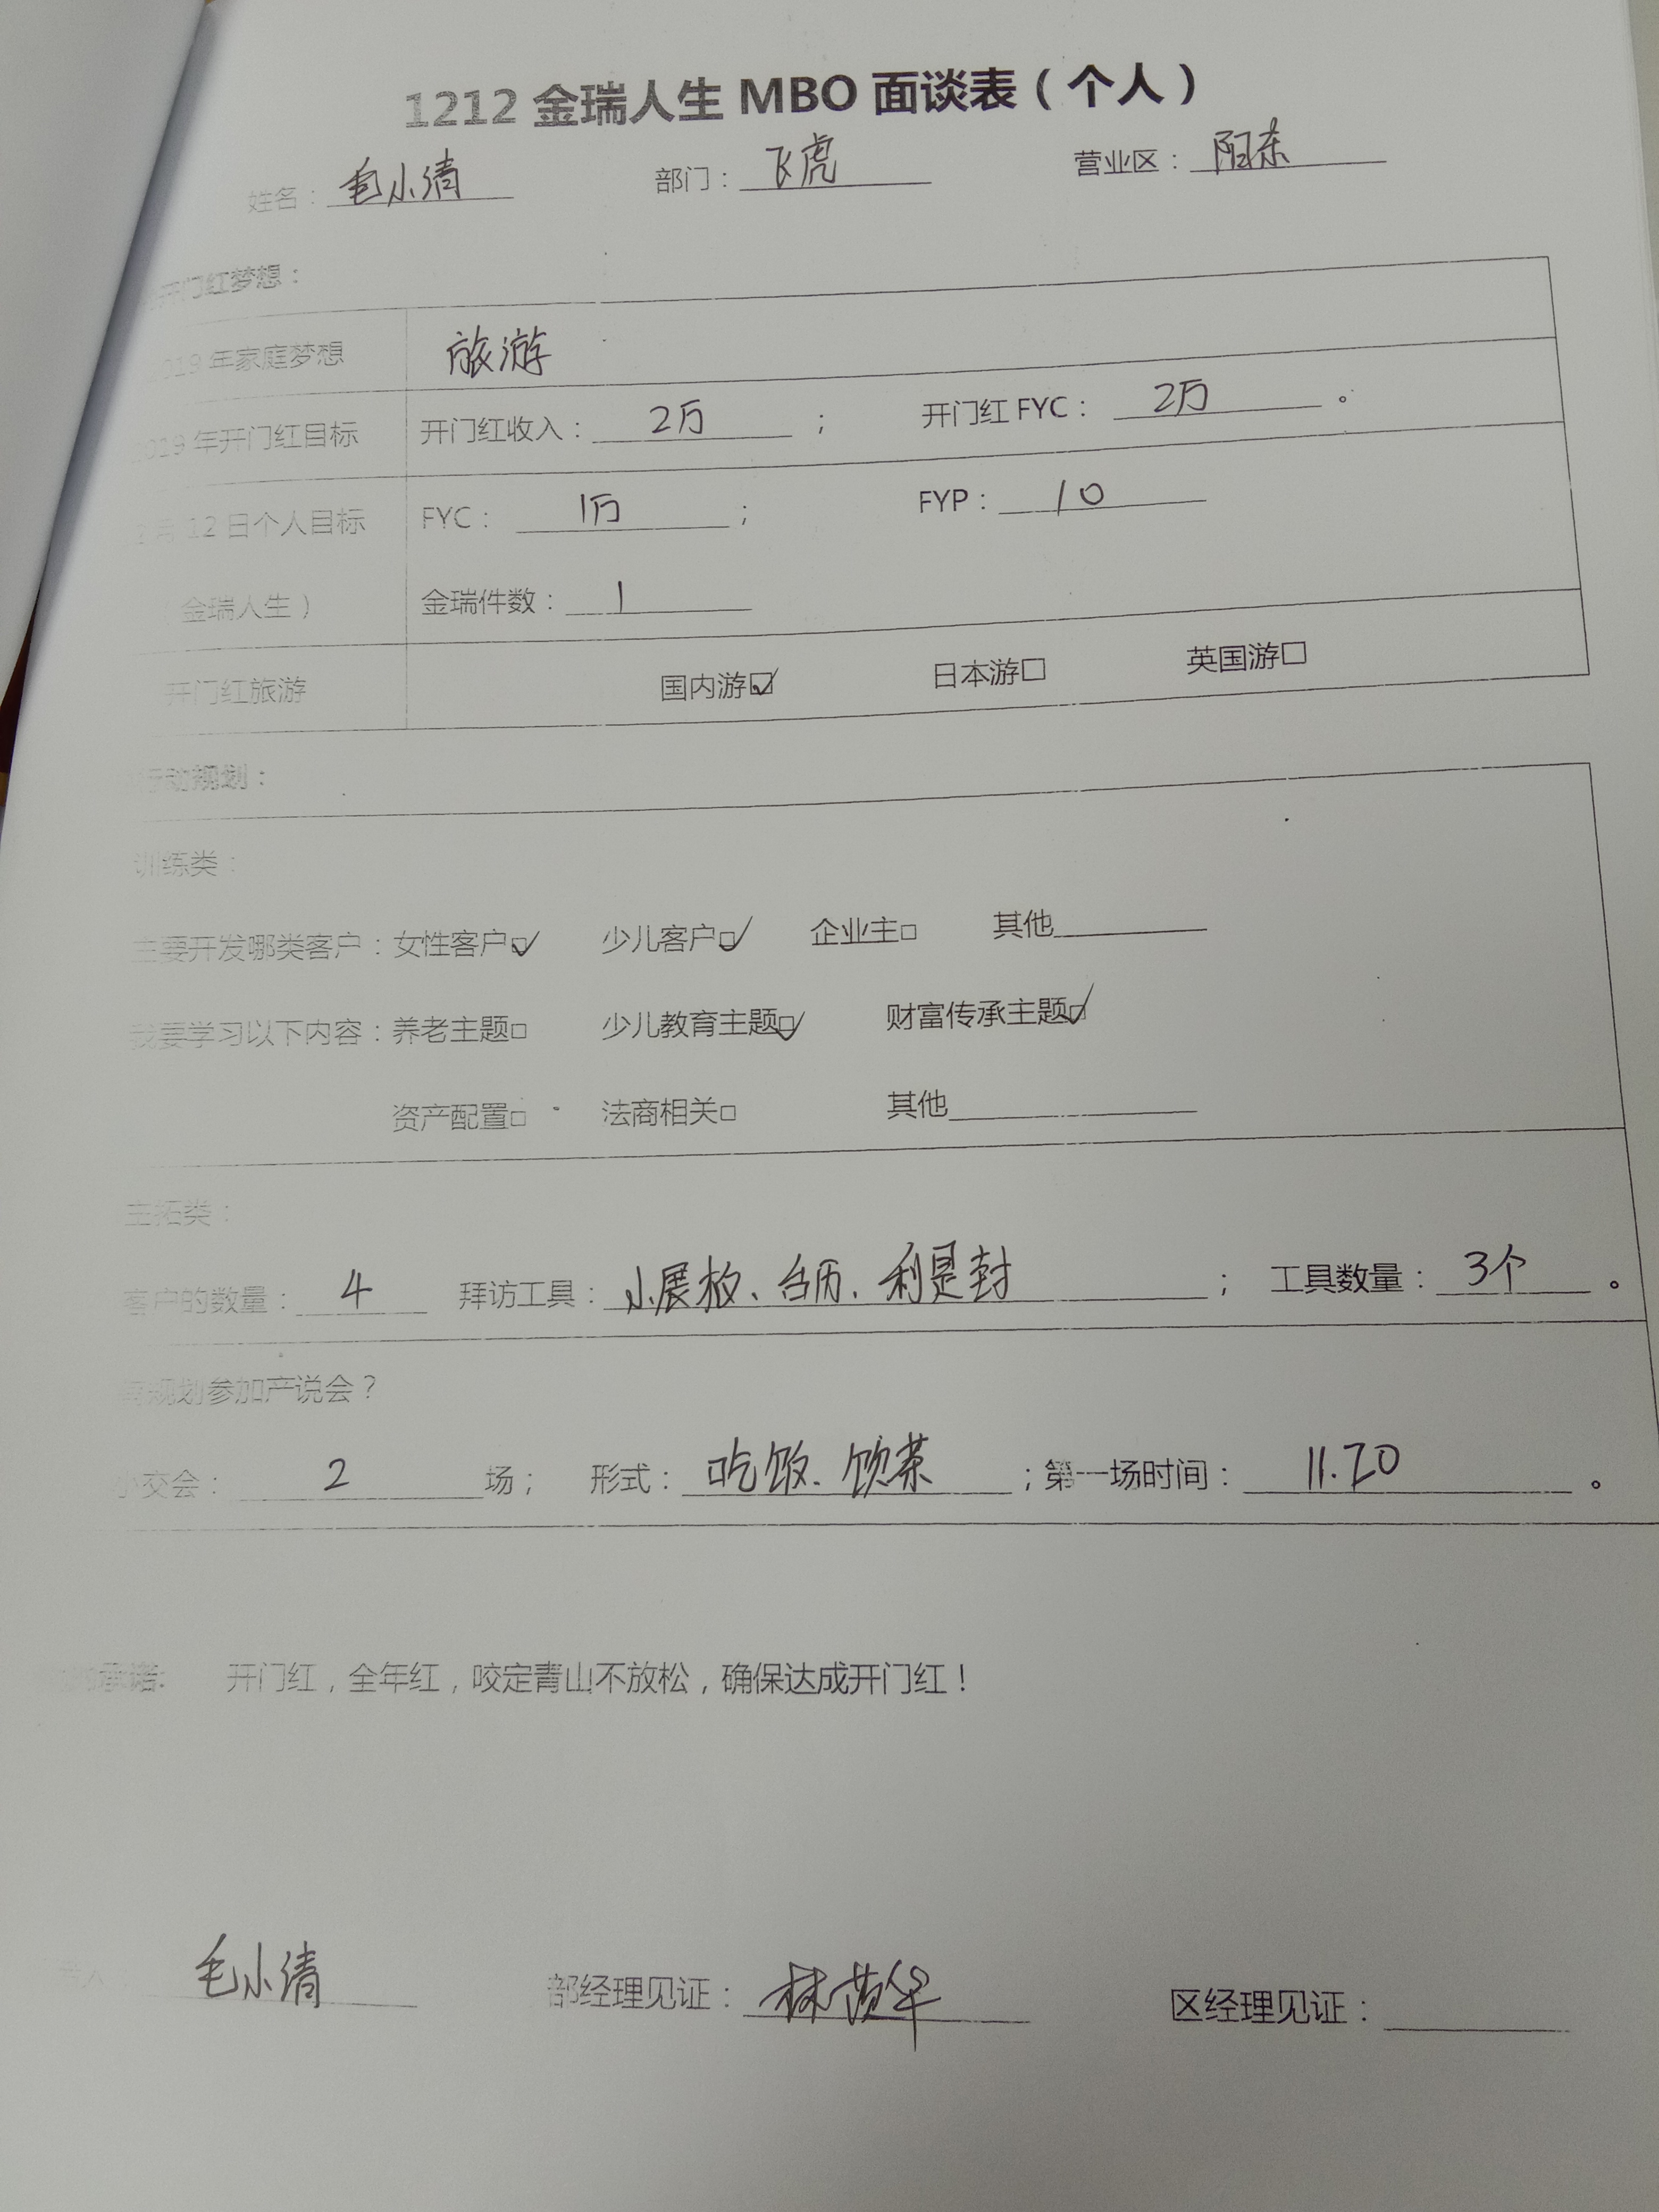 1212 金瑞人生 MBO 面谈表（个人）
姓名：毛小清 部门：飞虎 营业区：阳东
开门红梦想：
2019 年家庭梦想 旅游
2019 年开门红目标 开门红收入：2万； 开门红 FYC：2万。
月 12 日个人目标 FYC：1万； FYP：10
金瑞人生） 金瑞件数：1
开门红旅游 国内游☑ 日本游□ 英国游□
行动规划：
训练类：
主要开发哪类客户：女性客户☑ 少儿客户☑ 企业主□ 其他
我要学习以下内容：养老主题□ 少儿教育主题☑ 财富传承主题☑
资产配置□ 法商相关□ 其他
主拓类：
客户的数量：4 拜访工具：小展板、台历、利是封； 工具数量：3个。
规划参加产说会？
小交会：2场； 形式：吃饭、饮茶；第一场时间：11.20。
承诺: 开门红，全年红，咬定青山不放松，确保达成开门红！
毛小清 部经理见证：林 华 区经理见证：